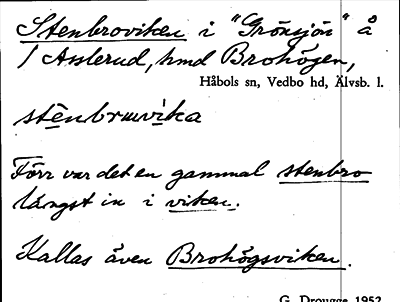 Stenbroviken i "Grönsjön" å
1 Asslerud, hmd Brohögen,
Håbols sn, Vedbo hd, Älvsb. l.
stènbrωvìka
Förr var det en gammal stenbro
längst in i viken.
Kallas även Brohögsviken.
G. Drougge 1952